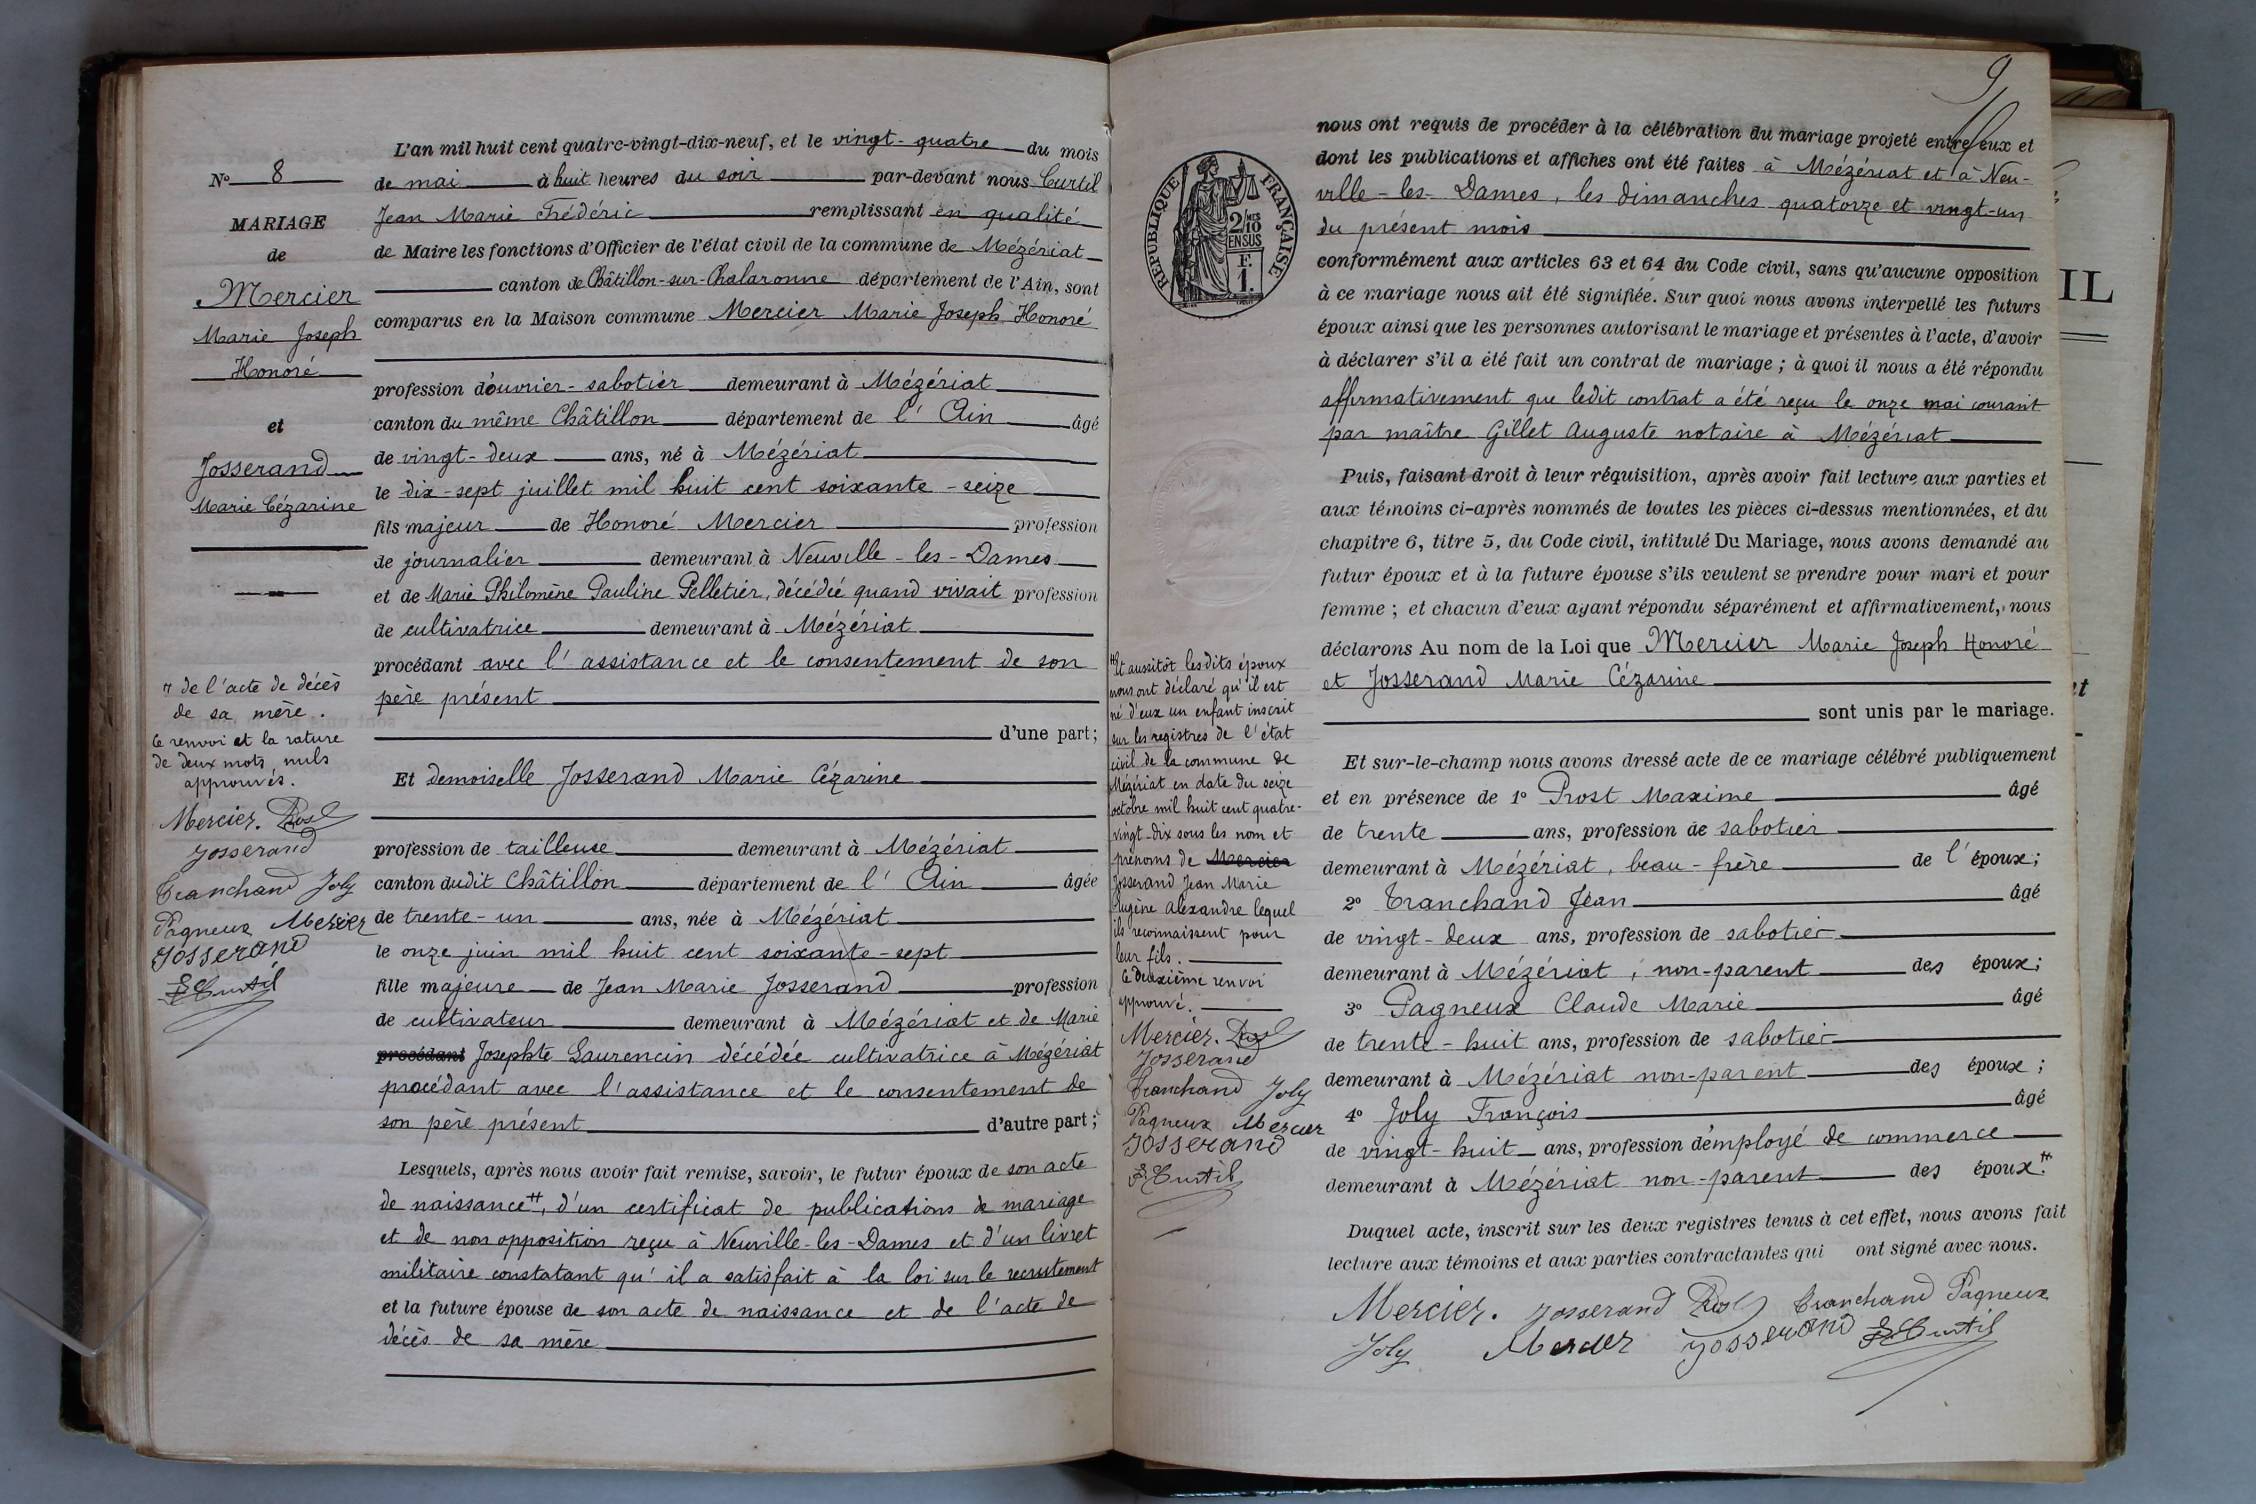 N° 8
MARIAGE
de
Mercier
Marie Joseph
Honoré
et
Josserand
Marie Cézarine
L'an mil huit cent quatre-vingt-dix-neuf, et le vingt-quatre du mois
de mai à huit heures du soir par-devant nous Curtil
Jean Marie Frédéric remplissant en qualité
de Maire les fonctions d'Officier de l'état civil de la commune de Mézériat
canton de Châtillon-sur-Chalaronne département de l'Ain, sont
comparus en la Maison commune Mercier Marie Joseph Honoré
profession d'ouvrier-sabotier demeurant à Mézériat
canton du même Châtillon département de l'Ain âgé
de vingt-deux ans, né à Mézériat
le dix-sept juillet mil huit cent soixante-seize
fils majeur de Honoré Mercier profession
de journalier demeurant à Neuville-les-Dames
et de Marie Philomène Pauline Pelletier, décédée quand vivait profession
de cultivatrice demeurant à Mézériat
procédant avec l'assistance et le consentement de son
père présent
d'une part;
Et demoiselle Josserand Marie Cézarine
profession de tailleuse demeurant à Mézériat
canton dudit Châtillon département de l'Ain âgée
de trente-un ans, née à Mézériat
le onze juin mil huit cent soixante-sept
fille majeure de Jean Marie Josserand profession
de cultivateur demeurant à Mézériat et de Marie
procédant Josephte Laurencin décédée cultivatrice à Mézériat
procédant avec l'assistance et le consentement de
son père présent d'autre part;
Lesquels, après nous avoir fait remise, savoir, le futur époux de son acte
de naissance #, d'un certificat de publications de mariage
et de non opposition reçu à Neuville-les-Dames et d'un livret
militaire constatant qu'il a satisfait à la loi sur le recrutement
et la future épouse de son acte de naissance et de l'acte de
décès de sa mère
# de l'acte de décès
de sa mère.
Ce renvoi et la rature
de deux mots nuls
approuvés.
Mercier. Prost
Josserand
Tranchand Joly
Pagneux Mercier
Josserand
F Curtil
9
RÉPUBLIQUE FRANÇAISE
2/10
EN SUS
F.
1.
nous ont requis de procéder à la célébration du mariage projeté entre eux et
dont les publications et affiches ont été faites à Mézériat et à Neu-
ville-les-Dames, les dimanches quatorze et vingt-un
du présent mois
conformément aux articles 63 et 64 du Code civil, sans qu'aucune opposition
à ce mariage nous ait été signifiée. Sur quoi nous avons interpellé les futurs
époux ainsi que les personnes autorisant le mariage et présentes à l'acte, d'avoir
à déclarer s'il a été fait un contrat de mariage ; à quoi il nous a été répondu
affirmativement que ledit contrat a été reçu le onze mai courant
par maître Gillet Auguste notaire à Mézériat
Puis, faisant droit à leur réquisition, après avoir fait lecture aux parties et
aux témoins ci-après nommés de toutes les pièces ci-dessus mentionnées, et du
chapitre 6, titre 5, du Code civil, intitulé Du Mariage, nous avons demandé au
futur époux et à la future épouse s'ils veulent se prendre pour mari et pour
femme ; et chacun d'eux ayant répondu séparément et affirmativement, nous
déclarons Au nom de la Loi que Mercier Marie Joseph Honoré
et Josserand Marie Cézarine
sont unis par le mariage.
Et sur-le-champ nous avons dressé acte de ce mariage célébré publiquement
et en présence de 1° Prost Maxime âgé
de trente ans, profession de sabotier
demeurant à Mézériat, beau-frère de l'époux;
2° Tranchand Jean âgé
de vingt-deux ans, profession de sabotier
demeurant à Mézériat, non-parent des époux;
3° Pagneux Claude Marie âgé
de trente-huit ans, profession de sabotier
demeurant à Mézériat non-parent des époux ;
4° Joly François âgé
de vingt-huit ans, profession d'employé de commerce
demeurant à Mézériat non-parent des époux. #
Duquel acte, inscrit sur les deux registres tenus à cet effet, nous avons fait
lecture aux témoins et aux parties contractantes qui ont signé avec nous.
Mercier. Josserand Prost Tranchand Pagneux
Joly Mercier Josserand F Curtil
# Et aussitôt lesdits époux
nous ont déclaré qu'il est
né d'eux un enfant inscrit
sur les registres de l'état
civil de la commune de
Mézériat en date du seize
octobre mil huit cent quatre-
vingt-dix sous les nom et
prénoms de Mercier
Josserand Jean Marie
Eugène Alexandre lequel
ils reconnaissent pour
leur fils.
Ce deuxième renvoi
approuvé.
Mercier. Prost
Josserand
Tranchand Joly
Pagneux Mercier
Josserand
F Curtil
IL